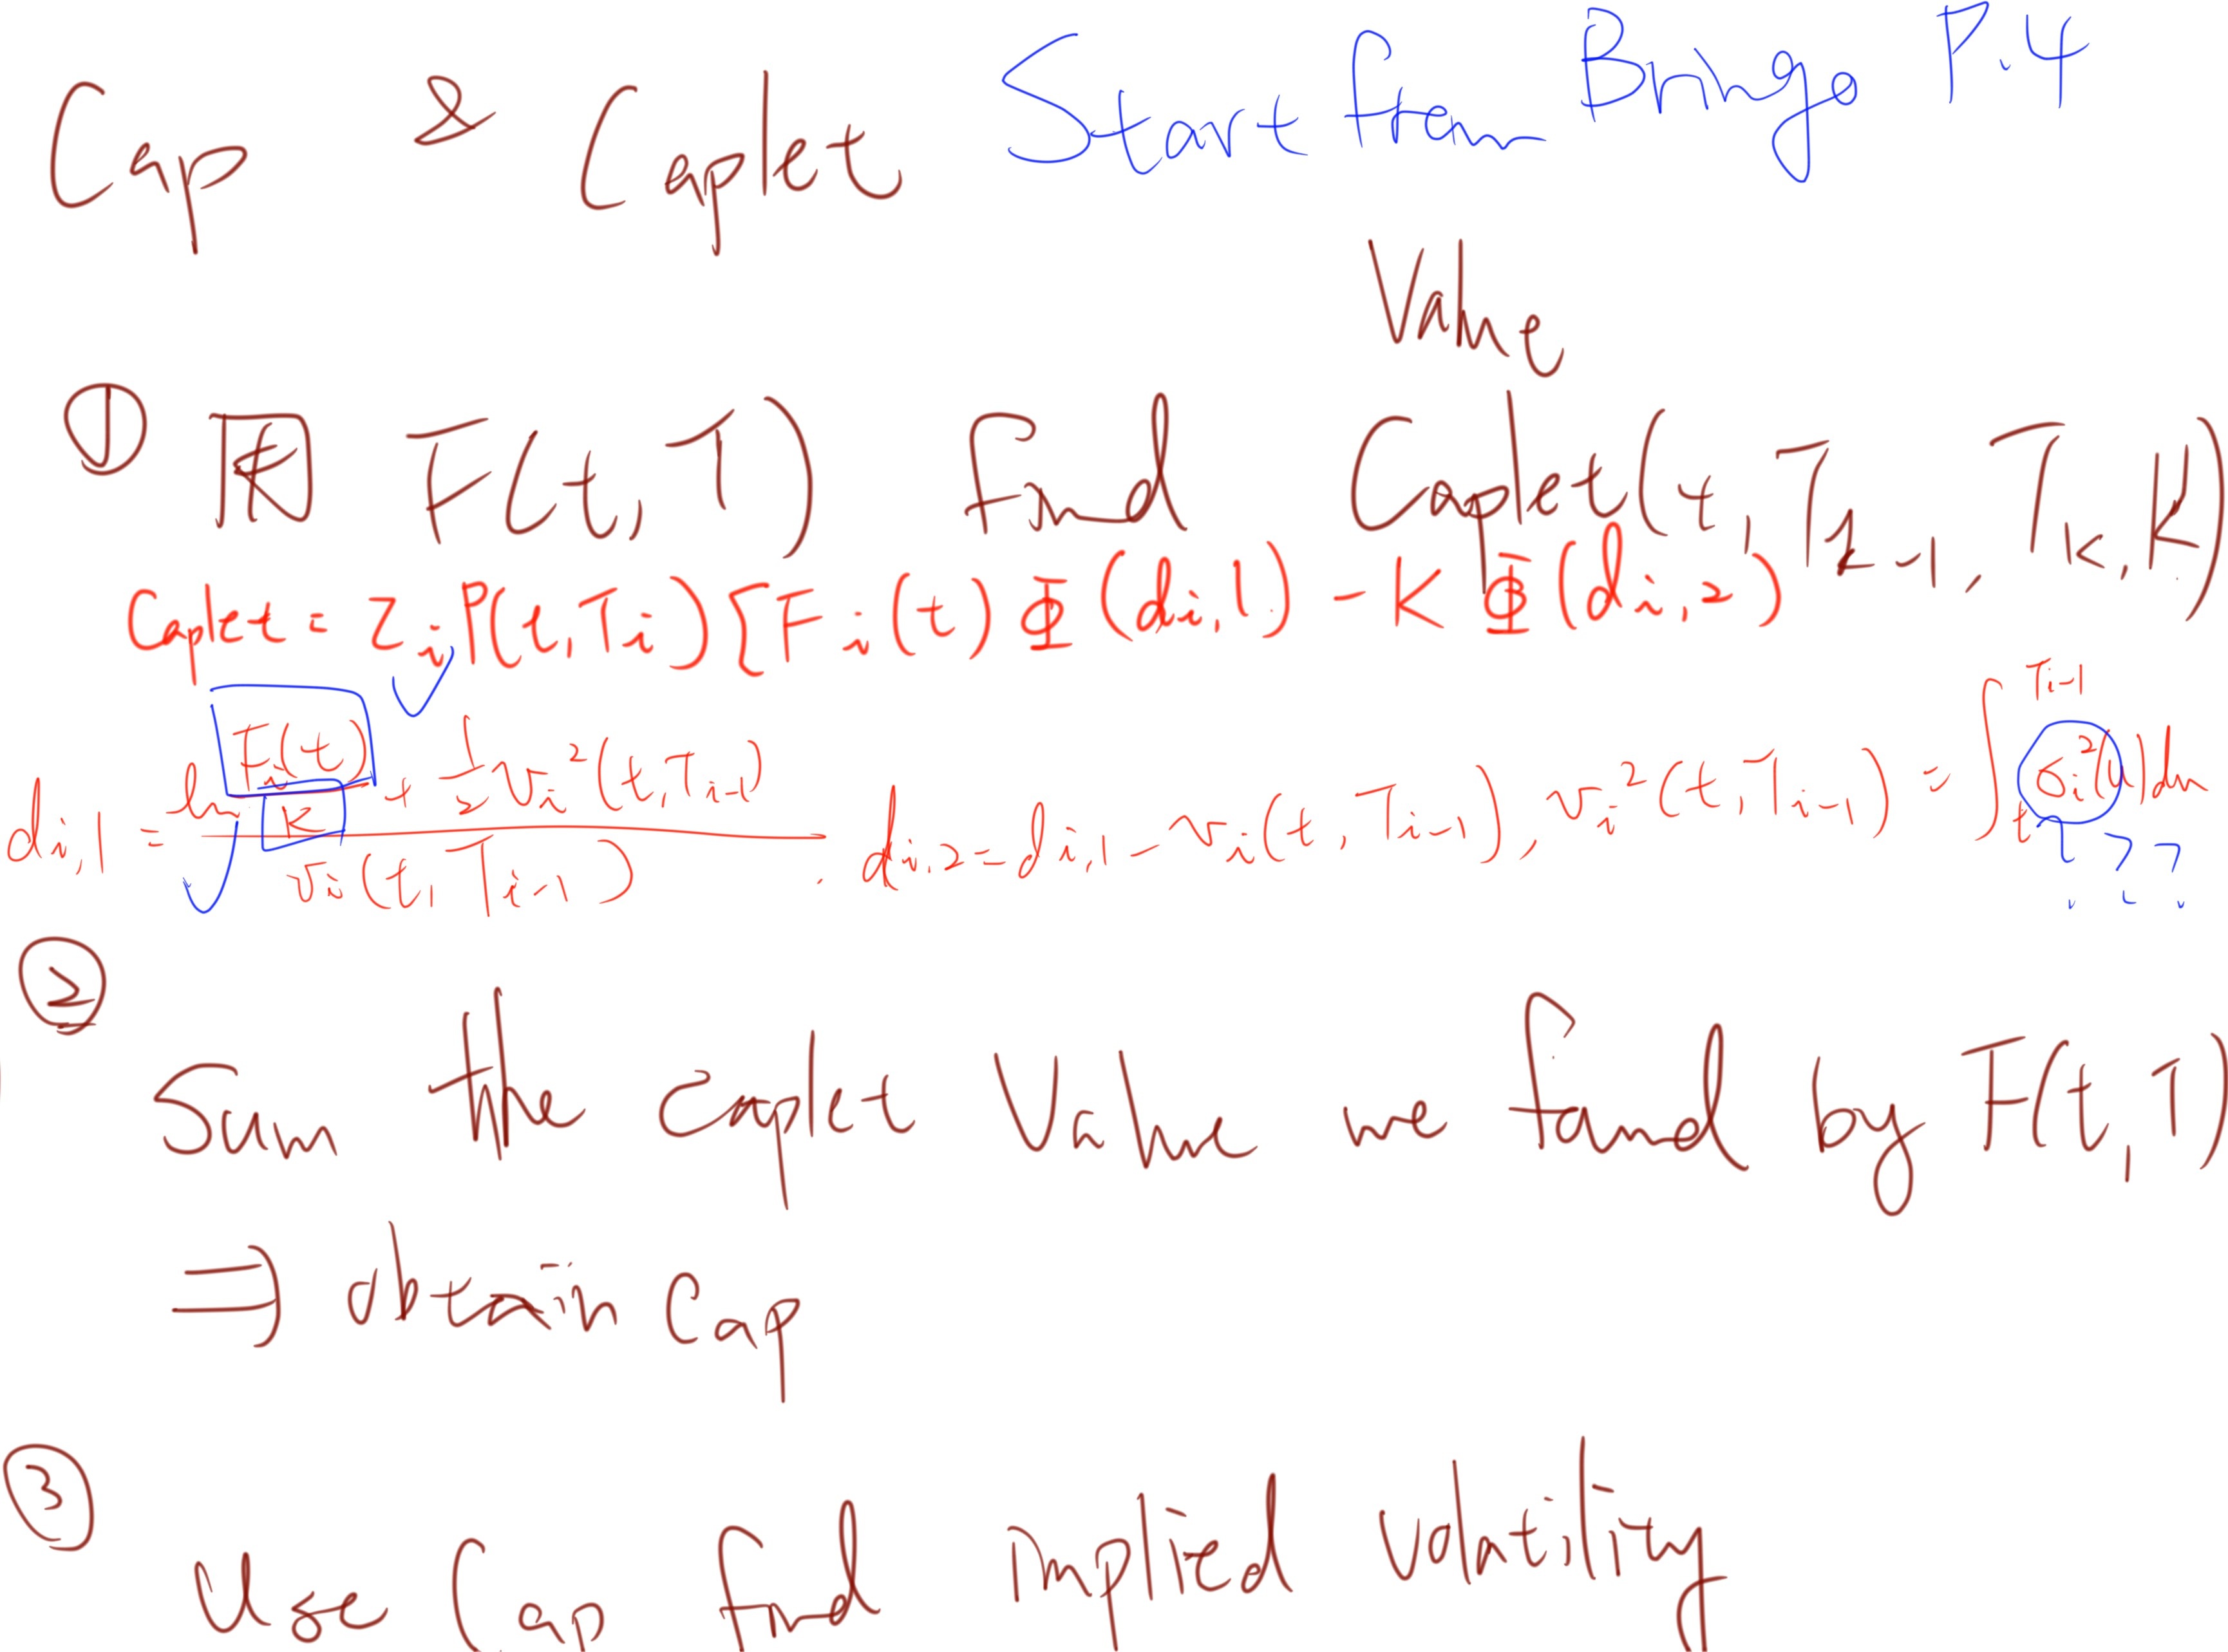 Cap & Caplet Start from Bringo P.4
Value
① F(t,T) find Caplet(t, T_{k-1}, T_k, K)
Caplet = τ_i P(t,T_i) [F_i(t) Φ(d_{i,1}) - K Φ(d_{i,2})
d_{i,1} = (ln F_i(t)/K + 1/2 v_i²(t,T_{i-1})) / v_i(t,T_{i-1}) . d_{i,2} = d_{i,1} - v_i(t,T_{i-1}), v_i²(t,T_{i-1}) = ∫_t^{T_{i-1}} σ_i²(u)du
???
② Sum the caplet Value we found by F(t,T)
⇒ obtain Cap
③ Use Cap find implied volatility